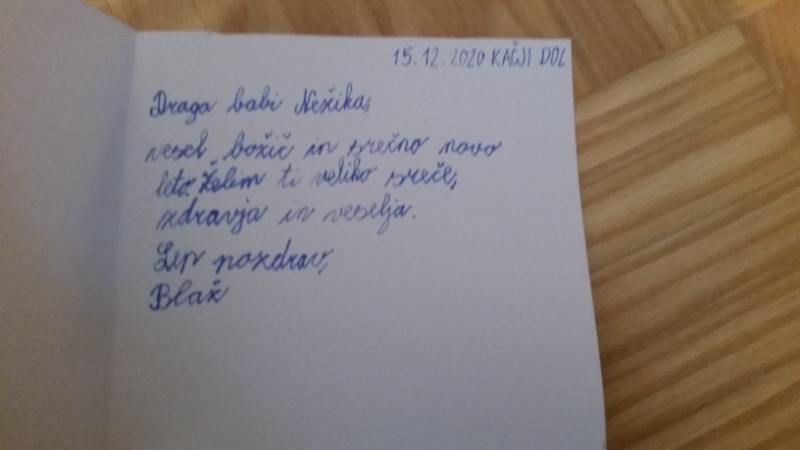 15.12.2020 KAČJI DOL
Draga babi Nežika,
vesel božič in srečno novo
leto. Želim ti veliko sreče,
zdravja in veselja.
Lep pozdrav,
Blaž